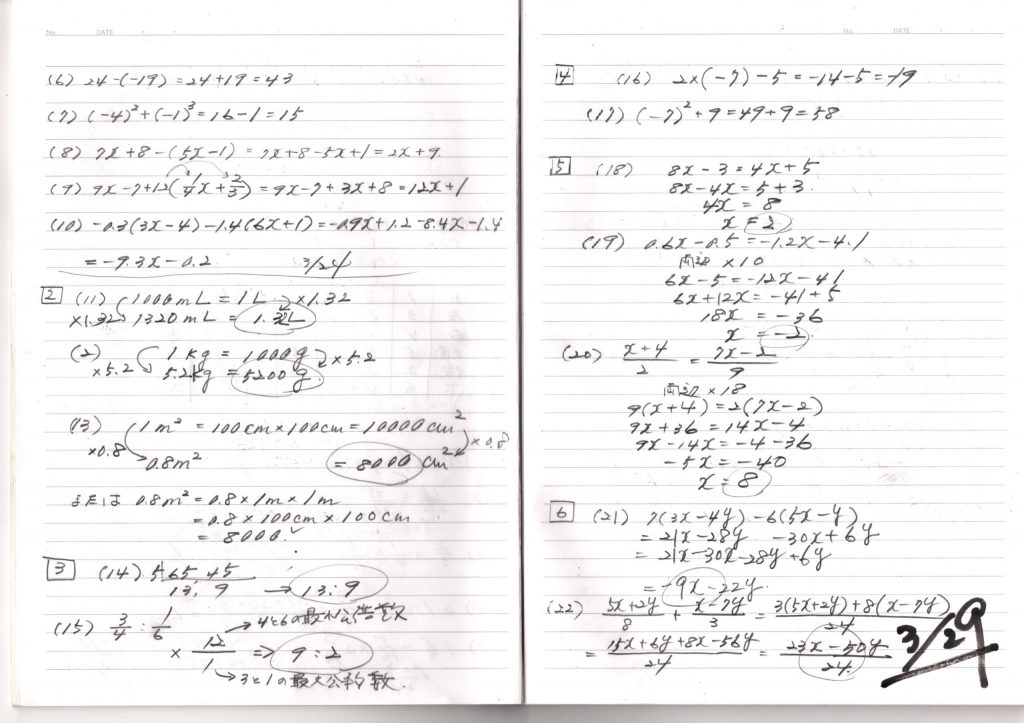 No. DATE
(6) 24-(-19) = 24+19 = 43
(7) (-4)²+(-1)³ = 16-1 = 15
(8) 7x+8-(5x-1) = 7x+8-5x+1 = 2x+9
(9) 9x-7+12(1/4x+2/3) = 9x-7+3x+8 = 12x+1
(10) -0.3(3x-4)-1.4(6x+1) = -0.9x+1.2-8.4x-1.4
= -9.3x-0.2 3/24
2 (11) 1000mL = 1L ×1.32
×1.32 1320mL = 1.32L
(2) 1kg = 1000g ×5.2
×5.2 5.2kg = 5200g
(13) 1m² = 100cm×100cm = 10000cm²
×0.8 0.8m² = 8000cm² ×0.8
または 0.8m² = 0.8×1m×1m
= 0.8×100cm×100cm
= 8000
3 (14) 5 65, 45
13, 9 → 13:9
(15) 3/4 : 1/6
× 12/1 ⇒ 9:2
→4と6の最小公倍数
→3と1の最大公約数
No. DATE
4 (16) 2×(-7)-5 = -14-5 = -19
(17) (-7)²+9 = 49+9 = 58
5 (18) 8x-3 = 4x+5
8x-4x = 5+3
4x = 8
x = 2
(19) 0.6x-0.5 = -1.2x-4.1
両辺×10
6x-5 = -12x-41
6x+12x = -41+5
18x = -36
x = -2
(20) x+4/2 = 7x-2/9
両辺×18
9(x+4) = 2(7x-2)
9x+36 = 14x-4
9x-14x = -4-36
-5x = -40
x = 8
6 (21) 7(3x-4y)-6(5x-y)
= 21x-28y -30x+6y
= 21x-30x-28y+6y
= -9x-22y
(22) 5x+2y/8 + x-7y/3 = 3(5x+2y)+8(x-7y)/24
= 15x+6y+8x-56y/24 = 23x-50y/24
3/29